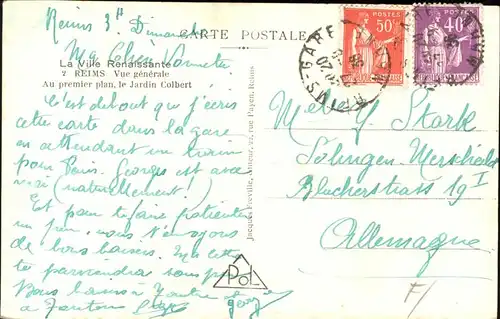 Reims 3h Dimanche
CARTE POSTALE
Ma Chère
La Ville Renaissante
2 REIMS Vue générale
Au premier plan, le Jardin Colbert
C'est debout que j'écris
cette carte dans la gare
en attendant un train
pour Paris. Georges est avec
moi (naturellement!)
Et pour te faire patienter
un peu, nous t'envoyons
de bons baisers. Ma lettre
te parviendra sous peu
Bons baisers à
à
Jacques Fréville, éditeur, 22, rue Payen, Reims
PoL
POSTES
50c
POSTES
40c
REIMS-GARE
Melle Y. Stark
Solingen-Merscheid
Blücherstrass 19 I
Allemagne
F/